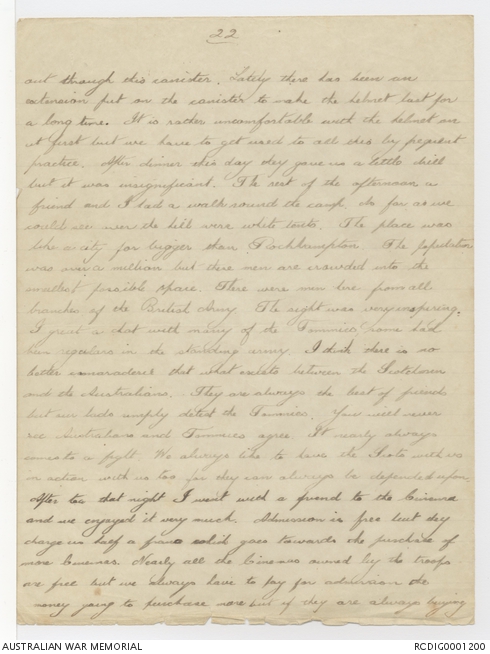 22
out through this canister. Lately there has been an
extension put on the canister to make the helmet last for
a long time. It is rather uncomfortable with the helmet on
at first but we have to get used to all this by frequent
practice. After dinner this day they gave us a little drill
but it was insignificant. The rest of the afternoon a
friend and I had a walk round the camp. As far as we
could see over the hill were white tents. The place was
like a city far bigger than Rockhampton. The population
was over a million but these men are crowded into the
smallest possible space. There were men here from all
branches of the British Army. The sight was very inspiring.
I great a chat with many of the Tommies, some had
been regulars in the standing army. I think there is no
better comaradere that what exists between the Scotchmen
and the Australians. They are always the best of friends
but our lads simply detest the Tommies. You will never
see Australians and Tommies agree. It nearly always
comes to a fight. We always like to have the Scots with us
in action with us too for they can always be depended upon.
After tea that night I went with a friend to the Cinema
and we enjoyed it very much. Admission is free but they
charge us half a franc which goes towards the purchase of
more Cinemas. Nearly all the Cinemas owned by the troops
are free but we always have to pay for admission the
money going to purchase more but if they are always buying
AUSTRALIAN WAR MEMORIAL
RCDIG0001200